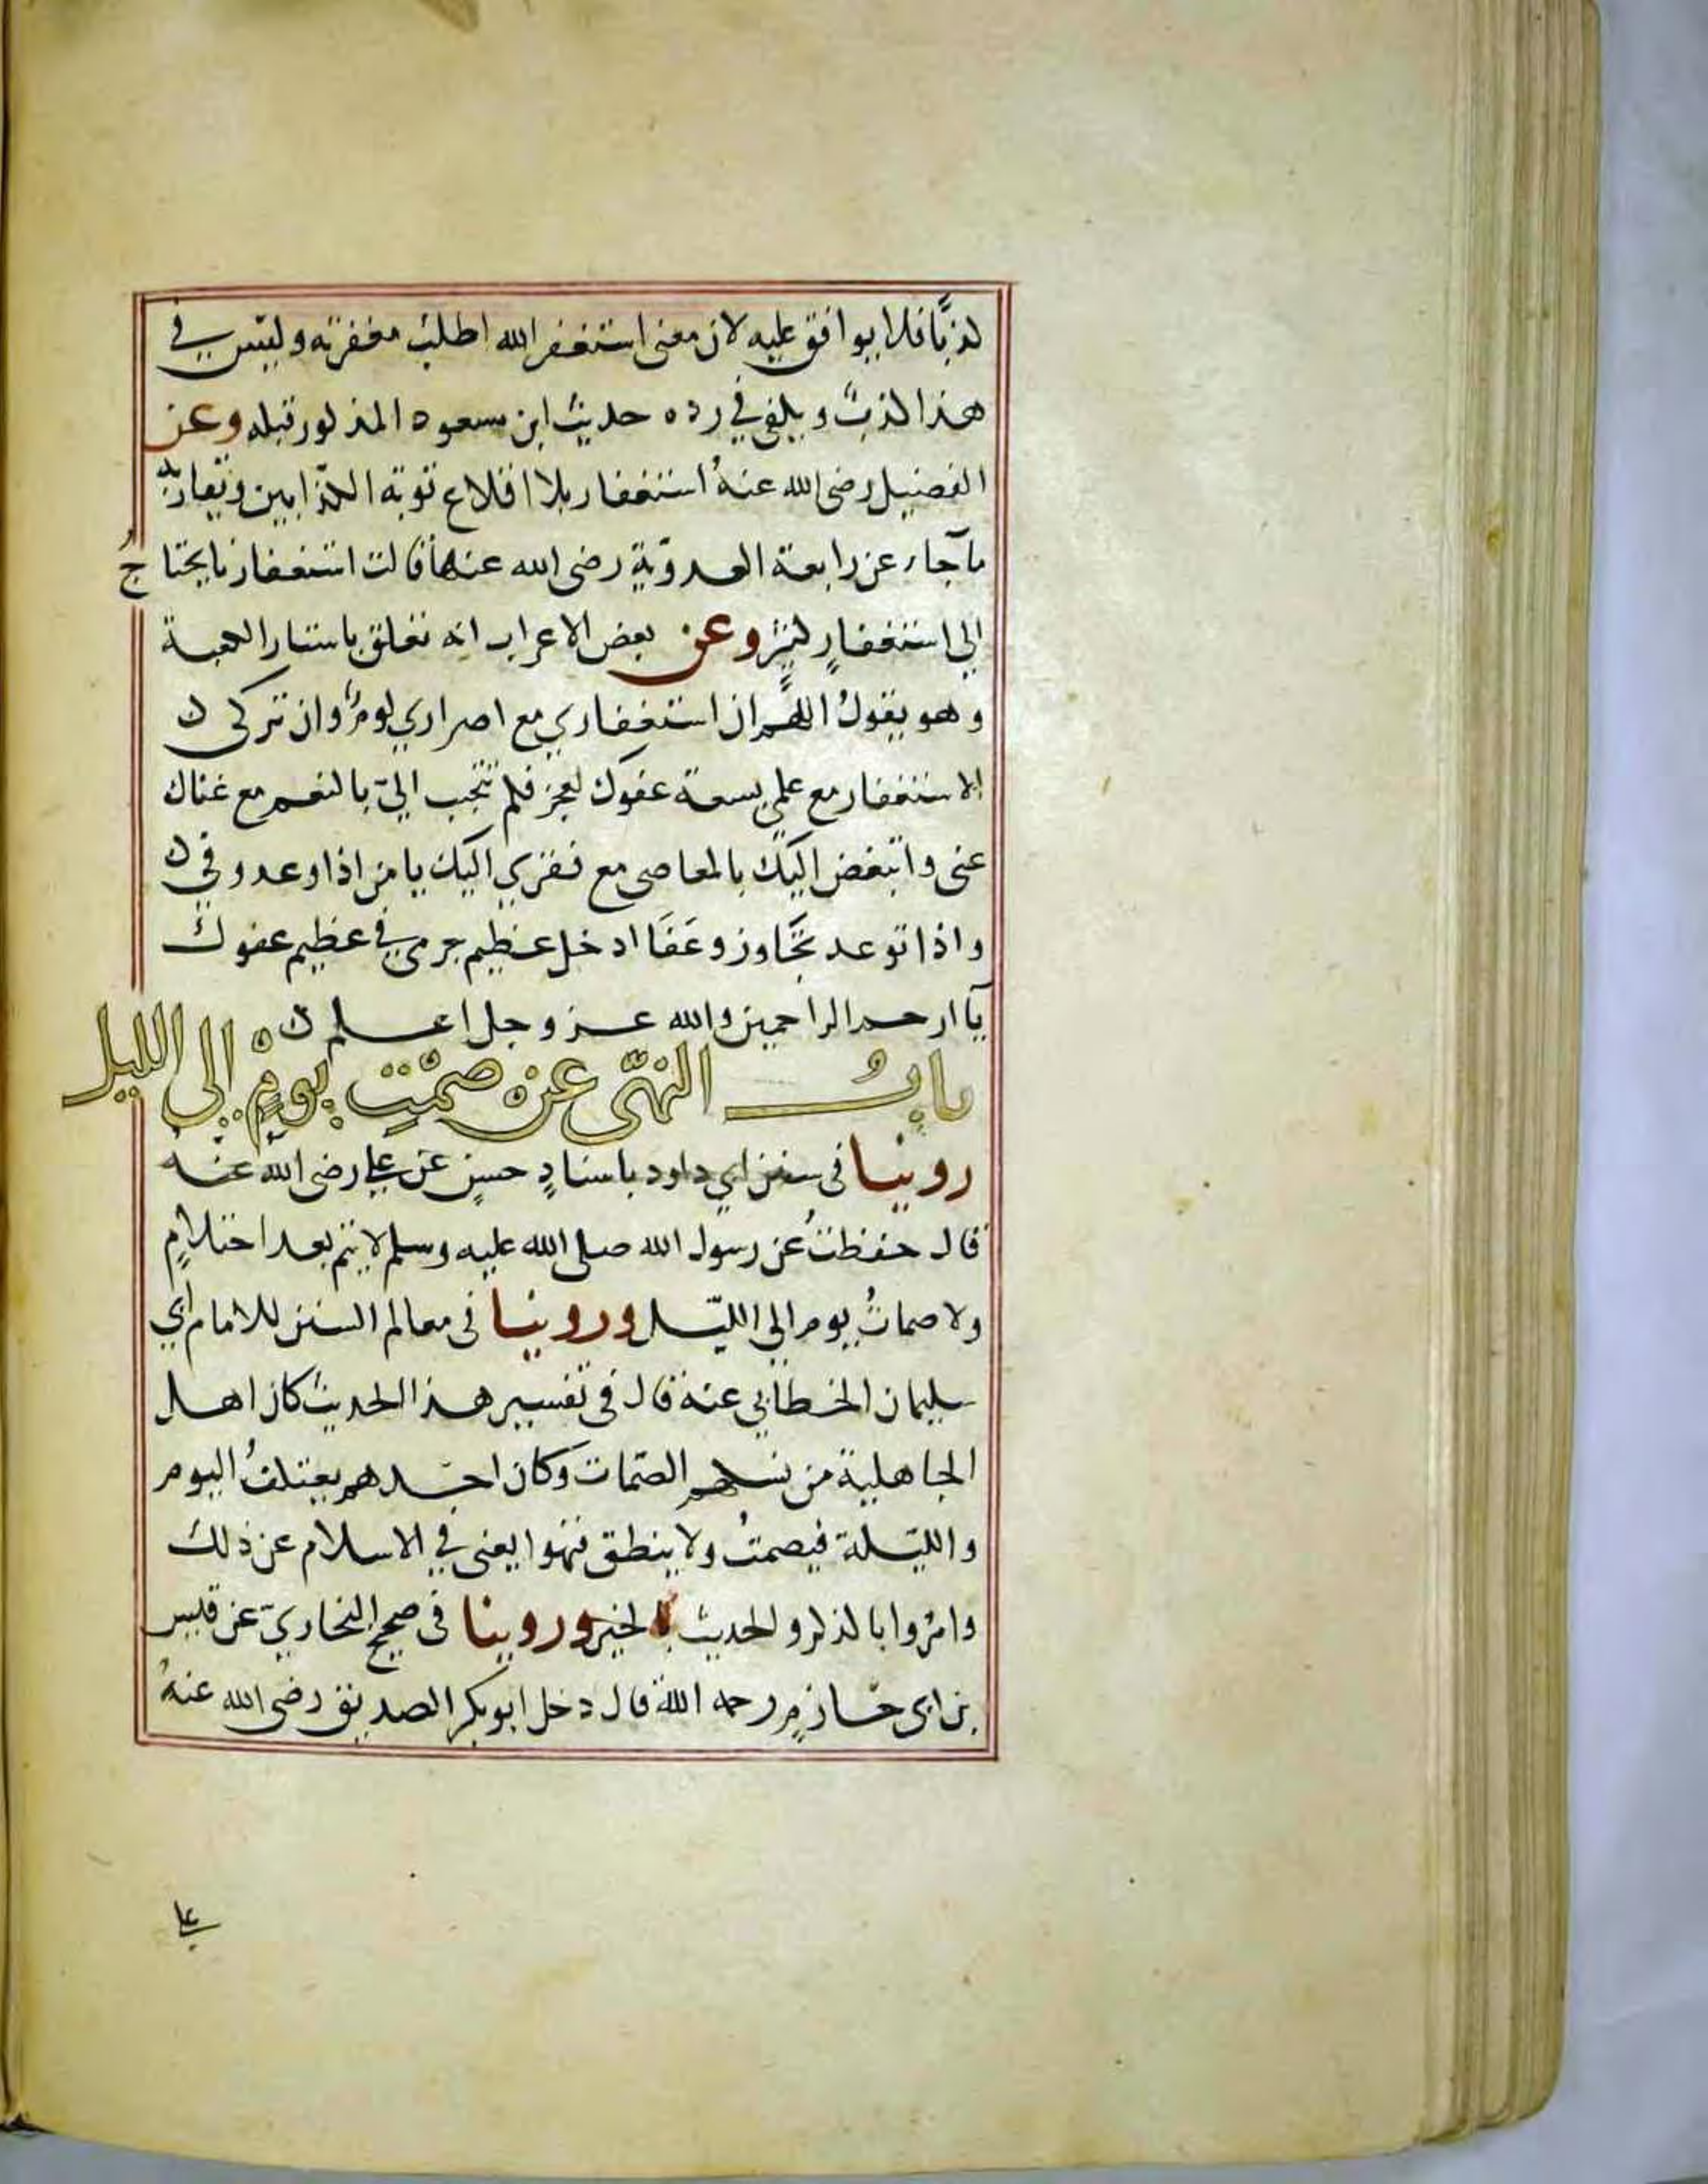 كذبًا فلا يوافق عليه لان معنى استغفر الله اطلب مغفرته وليس في
هذا كذب ويكفي في رده حديث ابن مسعود المذكور قبله وعن
الفضيل رضى الله عنهُ استغفار بلا اقلاع توبة الكذّابين ويقاربه
ما جاء عن رابعة العدوّية رضى الله عنها قالت استغفارنا يحتاجُ
الي استغفارٍ كثيرٍ وعن بعض الاعراب انه تعلق باستار الكعبة
وهو يقولُ اللهم ان استغفاري مع اصراري لومٌ وان تركي
الاستغفار مع علمي بسعة عفوك لعجز فكم تتحبب اليّ بالنعم مع غناك
عنى واتبغض اليك بالمعاصى مع فقري اليك يا من اذا وعد وفي
واذا توعد تجَاوز وعَفَا ادخل عظيم جرمي في عظيم عفوك
يآ ارحم الراحمين والله عز وجل اعلم
بابُ النهّى عن صمْتِ يومٍ إلى الليل
روينا فى سنن ابي داود باسنادٍ حسنٍ عن علي رضى الله عنهُ
قال حفظتُ عن رسول الله صلى الله عليه وسلم لا يتم بعد احتلامٍ
ولا صماتُ يوم الي الليّل وروينا فى معالم السنن للامام ابي
سليمان الخطابي عنه قال فى تفسير هذا الحديث كان اهل
الجاهلية من نسكهم الصّمات وكان احدهم يعتكفُ اليوم
والليّلة فيصمتُ ولا ينطق فنهوا يعنى في الاسلام عن ذلك
وامرُوا بالذكر والحديث بالخير وروينا فى صحيح البخاريّ عن قيس
بن ابى حازمٍ رحمه الله قال دخل ابو بكر الصديق رضى الله عنهُ
علي